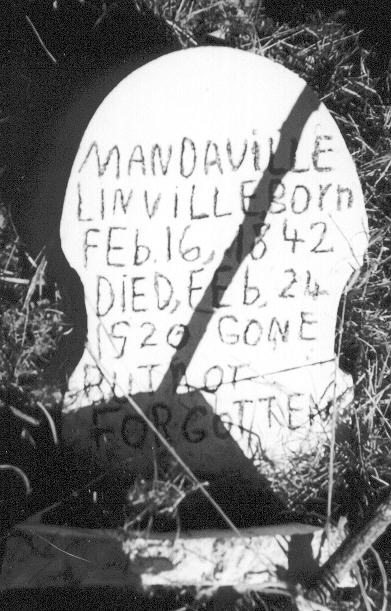 MANDAViLLE
LiNViLLE BOrn
FEb. 16, 1842
DiED, FEb. 24
1920 GONE
BUT NOT
FORGOTTEN